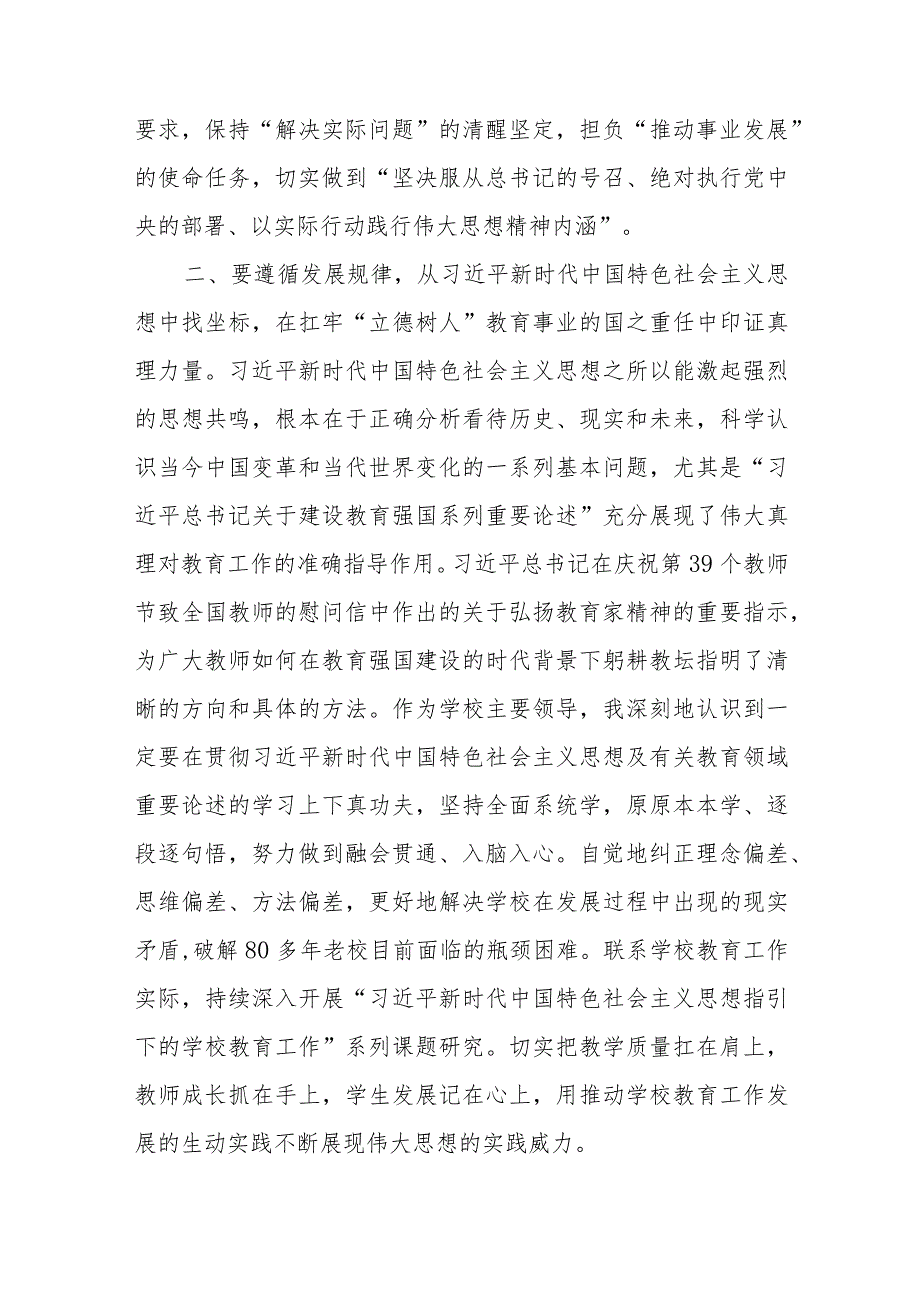 要求，保持“解决实际问题”的清醒坚定，担负“推动事业发展”
的使命任务，切实做到“坚决服从总书记的号召、绝对执行党中
央的部署、以实际行动践行伟大思想精神内涵”。
二、要遵循发展规律，从习近平新时代中国特色社会主义思
想中找坐标，在扛牢“立德树人”教育事业的国之重任中印证真
理力量。习近平新时代中国特色社会主义思想之所以能激起强烈
的思想共鸣，根本在于正确分析看待历史、现实和未来，科学认
识当今中国变革和当代世界变化的一系列基本问题，尤其是“习
近平总书记关于建设教育强国系列重要论述”充分展现了伟大真
理对教育工作的准确指导作用。习近平总书记在庆祝第 39 个教师
节致全国教师的慰问信中作出的关于弘扬教育家精神的重要指示，
为广大教师如何在教育强国建设的时代背景下躬耕教坛指明了清
晰的方向和具体的方法。作为学校主要领导，我深刻地认识到一
定要在贯彻习近平新时代中国特色社会主义思想及有关教育领域
重要论述的学习上下真功夫，坚持全面系统学，原原本本学、逐
段逐句悟，努力做到融会贯通、入脑入心。自觉地纠正理念偏差、
思维偏差、方法偏差，更好地解决学校在发展过程中出现的现实
矛盾,破解 80 多年老校目前面临的瓶颈困难。联系学校教育工作
实际，持续深入开展“习近平新时代中国特色社会主义思想指引
下的学校教育工作”系列课题研究。切实把教学质量扛在肩上，
教师成长抓在手上，学生发展记在心上，用推动学校教育工作发
展的生动实践不断展现伟大思想的实践威力。